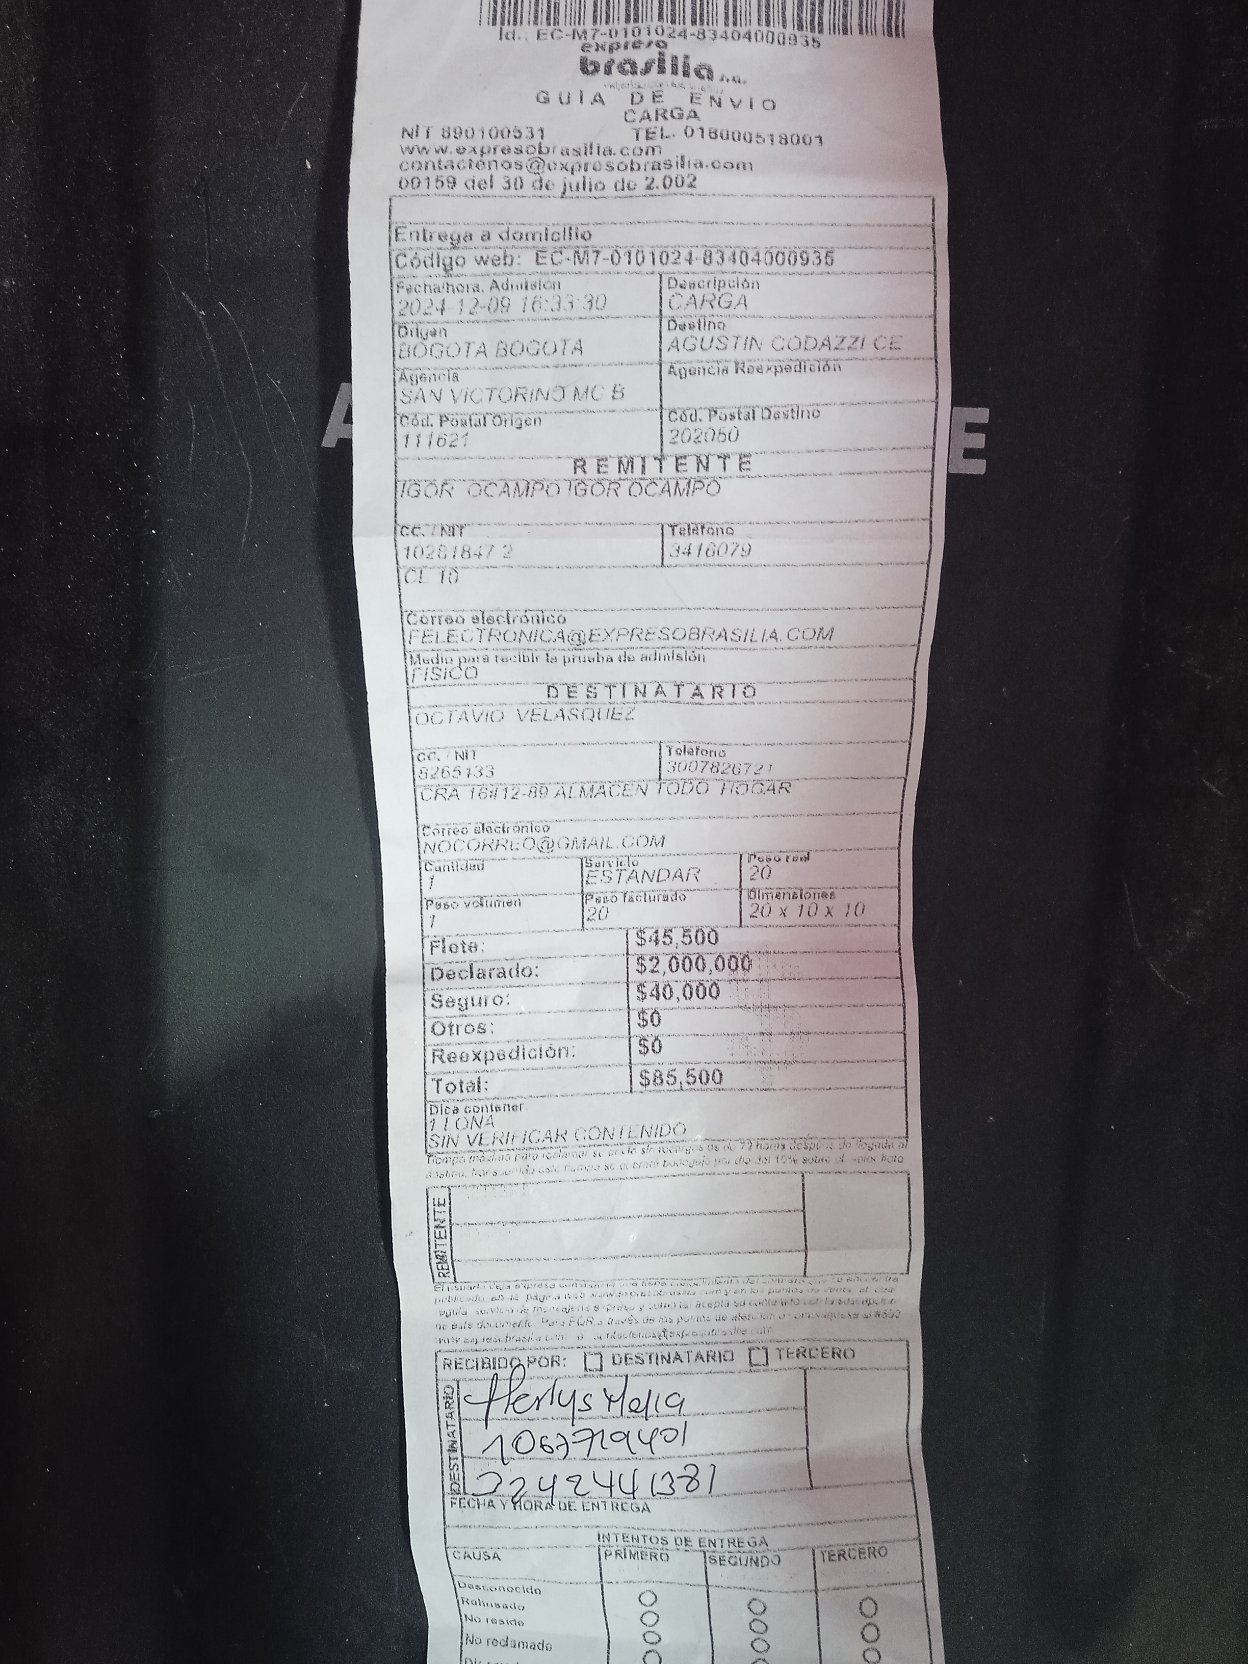 Id.: EC-M7-0101024-83404000935
expreso
brasilia s.a.
GUIA DE ENVIO
CARGA
NIT 890100531 TEL. 018000518001
www.expresobrasilia.com
contactenos@expresobrasilia.com
00159 del 30 de julio de 2.002
Entrega a domicilio
Código web: EC-M7-0101024-83404000935
Fecha/hora. Admisión Descripción
2024-12-09 16:33:30 CARGA
Origen Destino
BOGOTA BOGOTA AGUSTIN CODAZZI CE
Agencia Agencia Reexpedición
SAN VICTORINO MC B
Cód. Postal Origen Cód. Postal Destino
111621 202050
REMITENTE
IGOR OCAMPO IGOR OCAMPO
CC. / NIT Teléfono
10281847 2 3416079
CL 10
Correo electrónico
FELECTRONICA@EXPRESOBRASILIA.COM
Medio para recibir la prueba de admisión
FISICO
DESTINATARIO
OCTAVIO VELASQUEZ
CC. / NIT Teléfono
8265133 3007826721
CRA 16#12-89 ALMACEN TODO HOGAR
Correo electrónico
NOCORREO@GMAIL.COM
Cantidad Servicio Peso real
1 ESTANDAR 20
Peso volumen Peso facturado Dimensiones
1 20 20 x 10 x 10
Flete: $45,500
Declarado: $2,000,000
Seguro: $40,000
Otros: $0
Reexpedición: $0
Total: $85,500
Dice contener
1 LONA
SIN VERIFICAR CONTENIDO
Tiempo máximo para reclamar su envío sin recargos es de 72 horas después de llegada al
destino, transcurrido este tiempo se cobrará bodegaje por día del 10% sobre el valor flete
REMITENTE
RECIBIDO POR: DESTINATARIO TERCERO
DESTINATARIO
Herlys Mejia
1067719401
3242441381
FECHA Y HORA DE ENTREGA
INTENTOS DE ENTREGA
CAUSA PRIMERO SEGUNDO TERCERO
Desconocido
Rehusado
No reside
No reclamado
A E